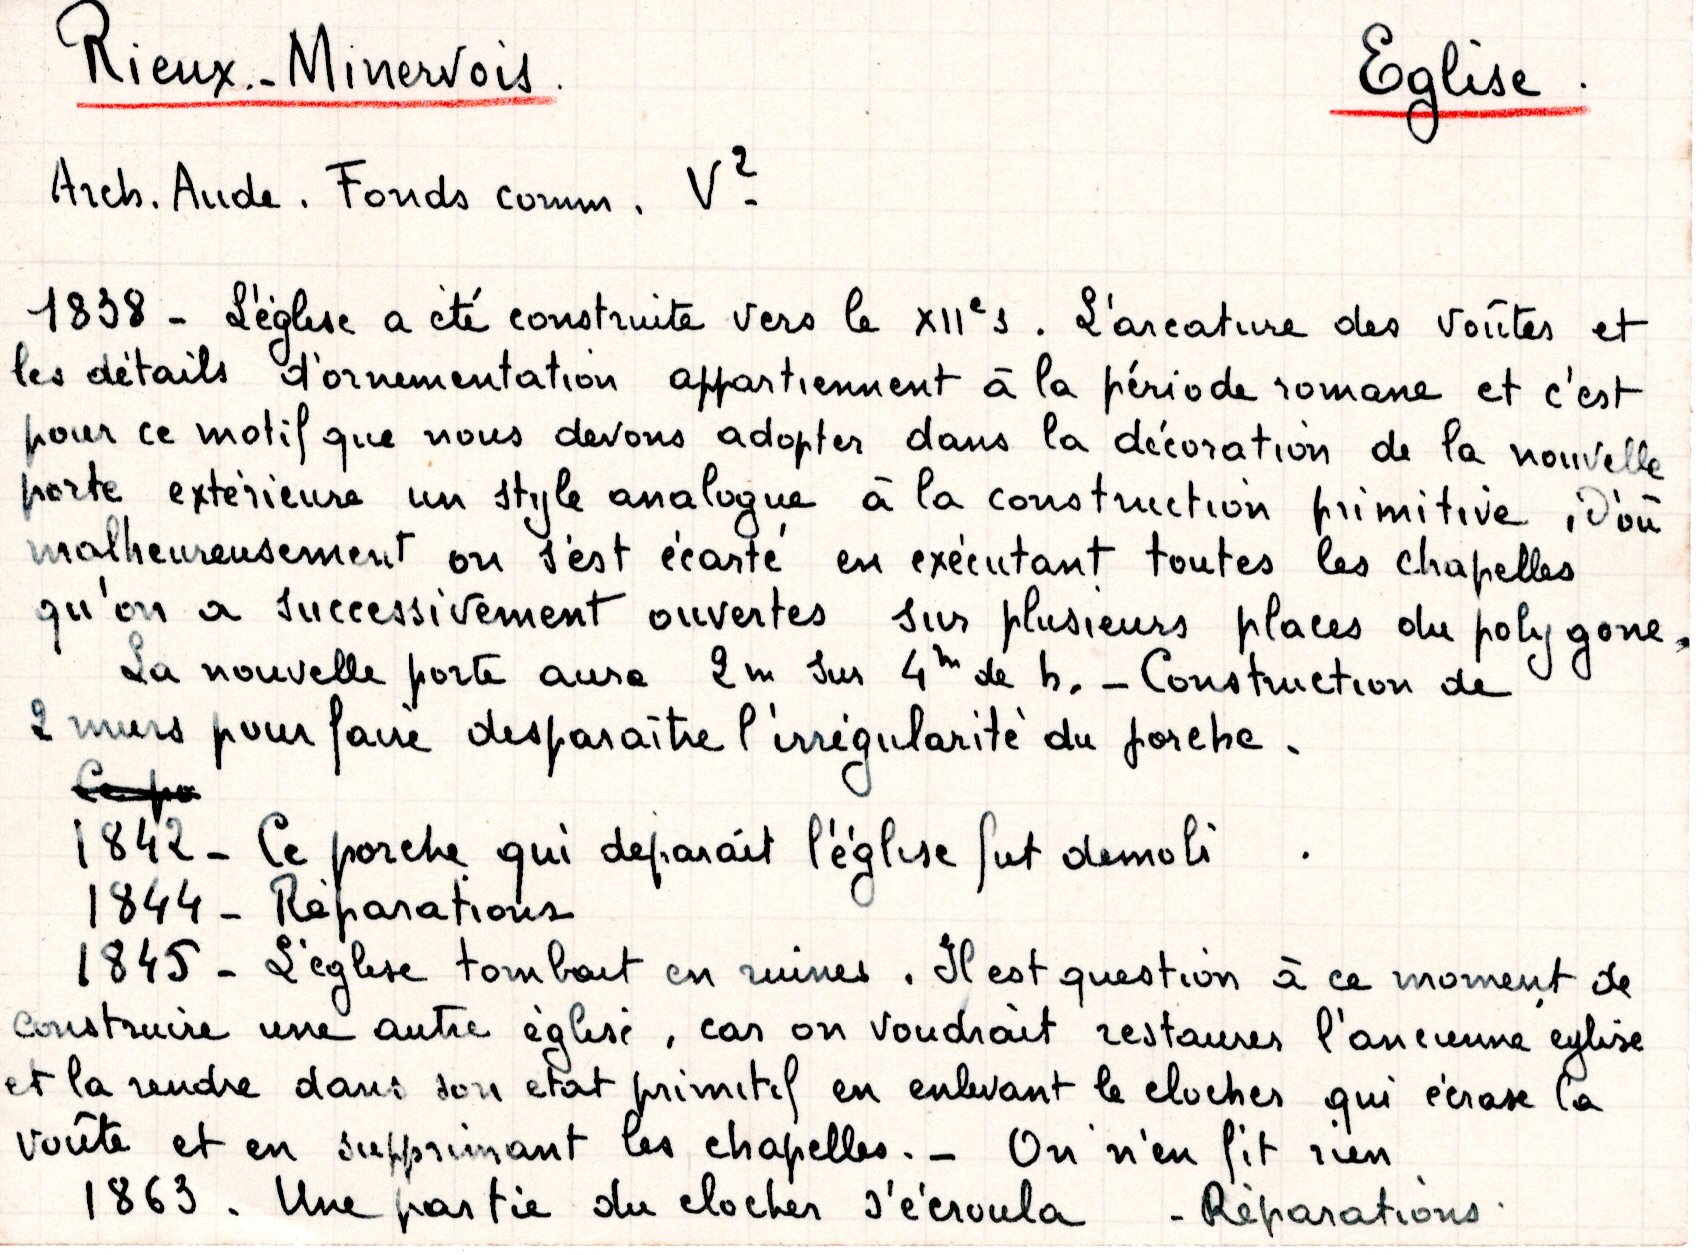 Rieux.-Minervois.
Eglise.
Arch. Aude. Fonds comm. V².
1838 - L'église a été construite vers le XIIe s. L'arcature des voûtes et
les détails d'ornementation appartiennent à la période romane et c'est
pour ce motif que nous devons adopter dans la décoration de la nouvelle
porte extérieure un style analogue à la construction primitive, D'où
malheureusement on s'est écarté en exécutant toutes les chapelles
qu'on a successivement ouvertes sur plusieurs places du polygone.
La nouvelle porte aura 2m sur 4m de h. - Construction de
2 murs pour faire desparaître l'irrégularité du porche.
Ce po
1842 - Ce porche qui déparait l'église fut demoli.
1844 - Réparations
1845 - L'église tombait en ruines. Il est question à ce moment de
construire une autre église, car on voudrait restaurer l'ancienne église
et la rendre dans son etat primitif en enlevant le clocher qui écrase la
voûte et en supprimant les chapelles. - On n'en fit rien
1863. Une partie du clocher s'écroula - Réparations.